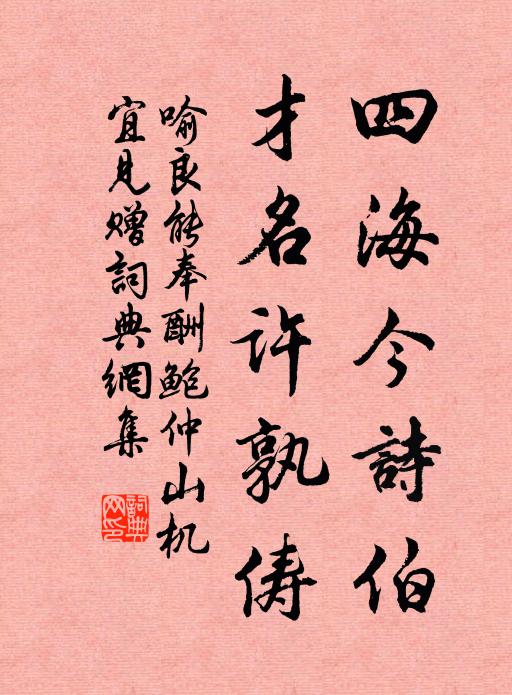 四海今詩伯
才名許孰俦
喻良能奉酬鲍仲山机
宜見赠詞典網集
詞典网印